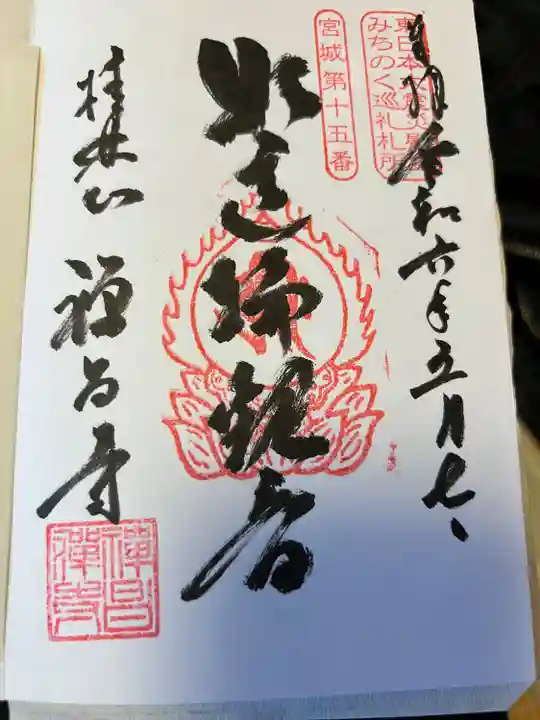 奉拝 令和六年五月七日
東日本大震災
みちのく巡礼札所
宮城第十五番
観音
桂林山 禅昌寺
禅昌
禅寺